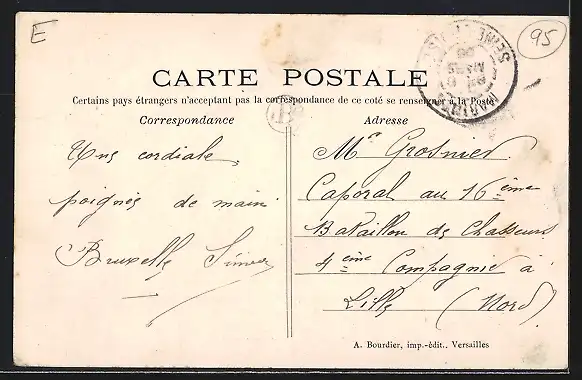 E
95
CARTE POSTALE
Certains pays étrangers n'acceptant pas la correspondance de ce coté se renseigner à la Poste
Correspondance
Adresse
Une cordiale
poignée de main
Bruxelle
Mr Grosnier
Caporal au 16ème
Bataillon de Chasseurs
4ème Compagnie à
Lille (Nord)
A. Bourdier, imp.-édit., Versailles